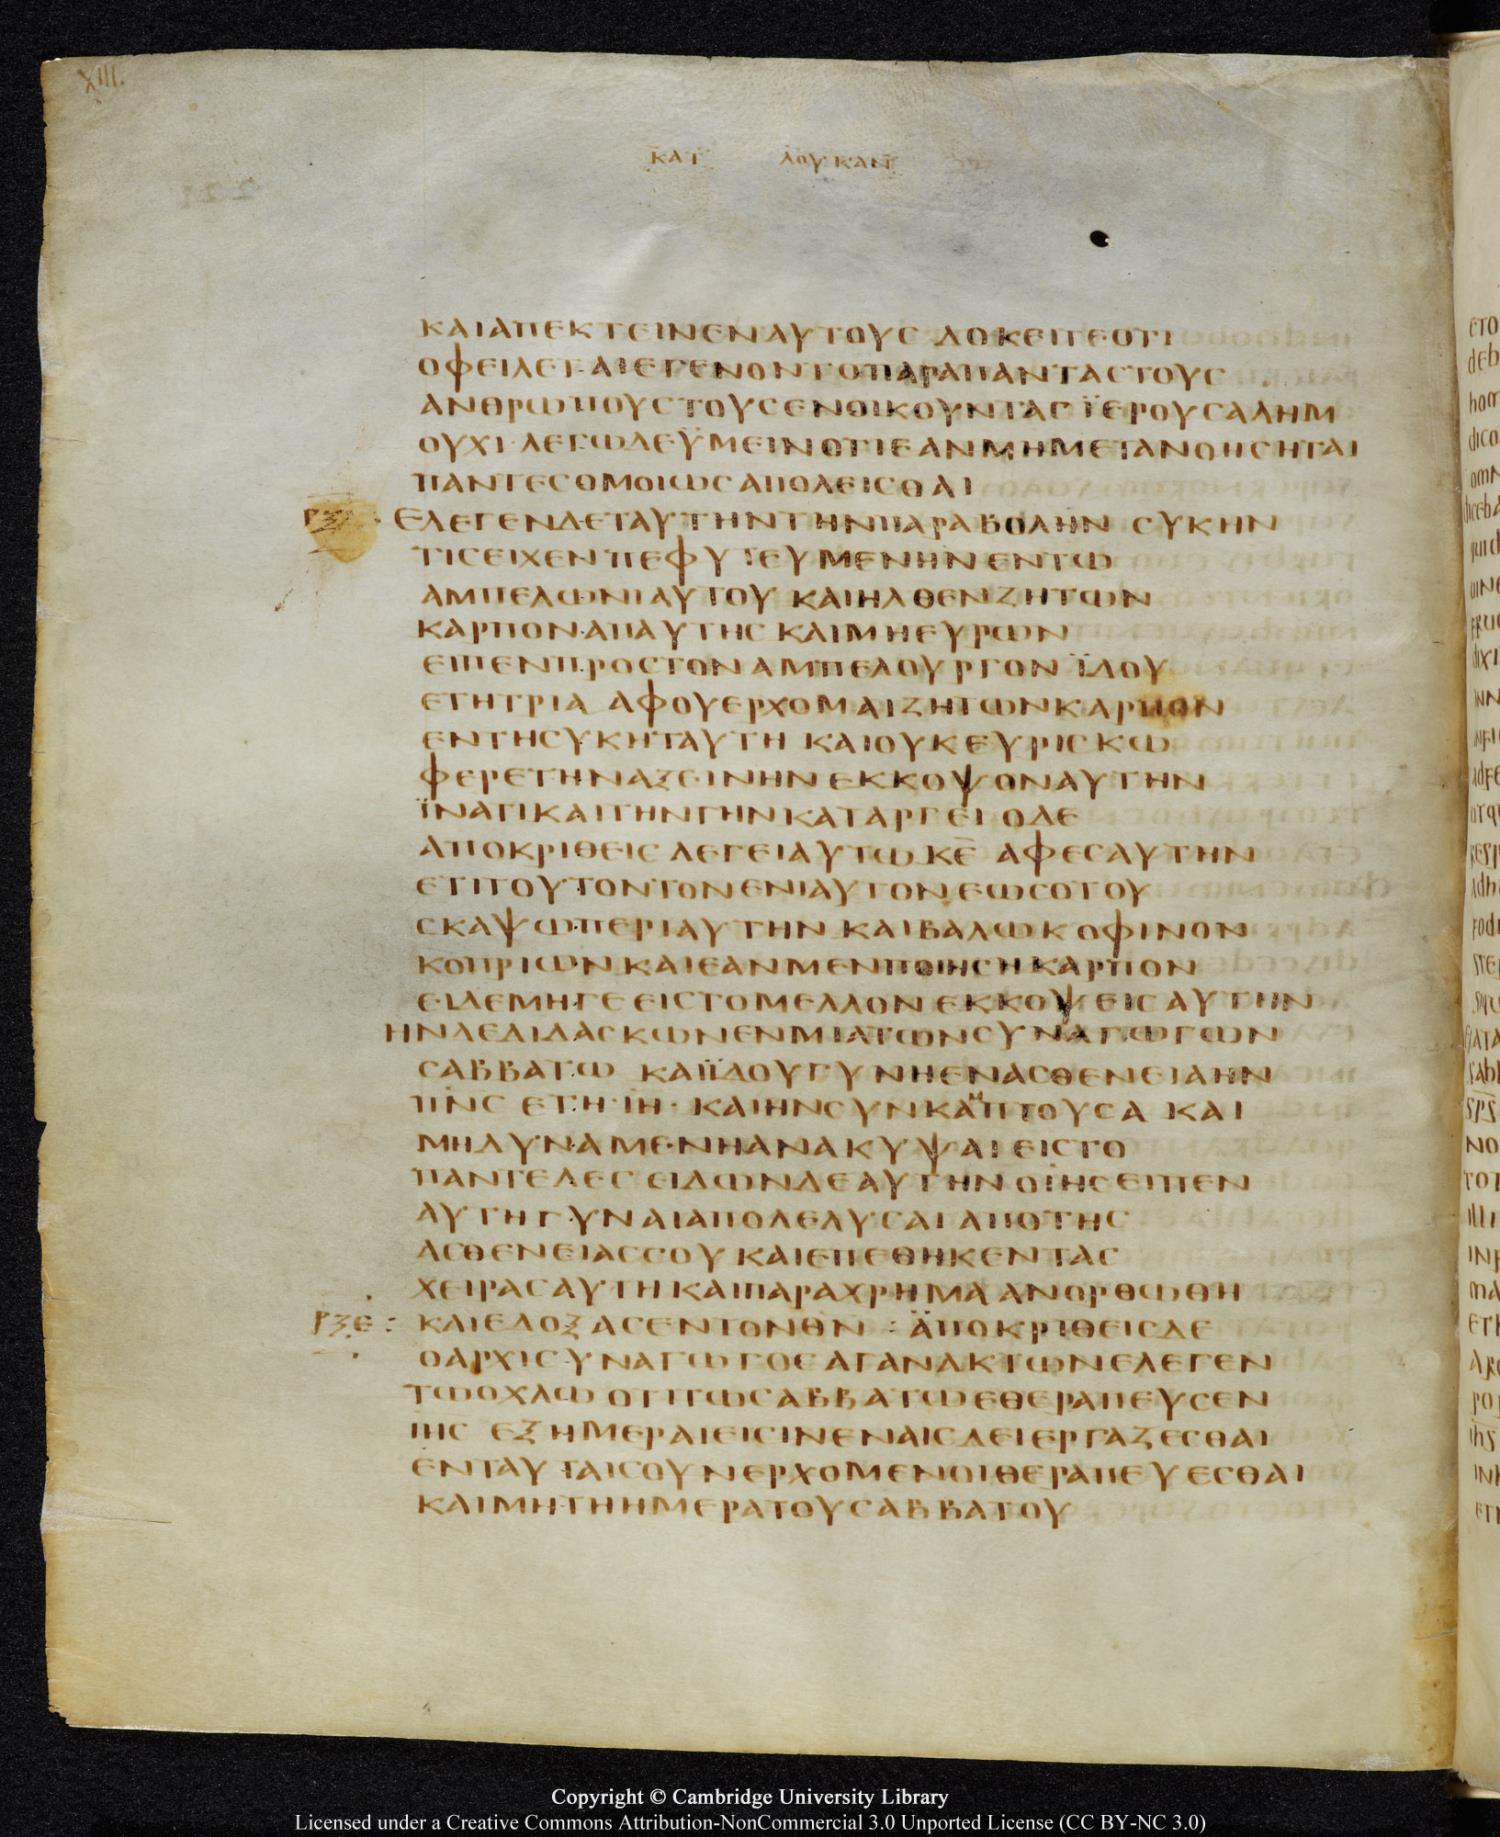 XIII.
ΚΑΤ ΛΟΥΚΑΝ
ΚΑΙΑΠΕΚΤΕΙΝΕΝΑΥΤΟΥΣ ΔΟΚΕΙΤΕΟΤΙ
ΟΦΕΙΛΕΤΑΙΕΓΕΝΟΝΤΟΠΑΡΑΠΑΝΤΑΣΤΟΥΣ
ΑΝΘΡΩΠΟΥΣΤΟΥΣΕΝΟΙΚΟΥΝΤΑΣ ΪΕΡΟΥΣΑΛΗΜ
ΟΥΧΙ·ΛΕΓΩΔΕΫΜΕΙΝΟΤΙΕΑΝΜΗΜΕΤΑΝΟΗΣΗΤΑΙ
ΠΑΝΤΕΣΟΜΟΙΩΣΑΠΟΛΕΙΣΘΑΙ
ΕΛΕΓΕΝΔΕΤΑΥΤΗΝΤΗΝΠΑΡΑΒΟΛΗΝ ΣΥΚΗΝ
ΤΙΣΕΙΧΕΝΠΕΦΥΤΕΥΜΕΝΗΝΕΝΤΩ
ΑΜΠΕΛΩΝΙΑΥΤΟΥ ΚΑΙΗΛΘΕΝΖΗΤΩΝ
ΚΑΡΠΟΝΑΠΑΥΤΗΣ ΚΑΙΜΗΕΥΡΩΝ
ΕΙΠΕΝΠΡΟΣΤΟΝΑΜΠΕΛΟΥΡΓΟΝ ΪΔΟΥ
ΕΤΗΤΡΙΑ ΑΦΟΥΕΡΧΟΜΑΙΖΗΤΩΝΚΑΡΠΟΝ
ΕΝΤΗΣΥΚΗΤΑΥΤΗ ΚΑΙΟΥΚΕΥΡΙΣΚΩ
ΦΕΡΕΤΗΝΑΞΕΙΝΗΝ ΕΚΚΟΨΟΝΑΥΤΗΝ
ΪΝΑΤΙΚΑΙΤΗΝΓΗΝΚΑΤΑΡΓΕΙ ΟΔΕ
ΑΠΟΚΡΙΘΕΙΣ ΛΕΓΕΙΑΥΤΩ ΚΕ ΑΦΕΣΑΥΤΗΝ
ΕΤΙΤΟΥΤΟΝΤΟΝΕΝΙΑΥΤΟΝ ΕΩΣΟΤΟΥ
ΣΚΑΨΩΠΕΡΙΑΥΤΗΝ ΚΑΙΒΑΛΩΚΟΦΙΝΟΝ
ΚΟΠΡΙΩΝ ΚΑΙΕΑΝΜΕΝΠΟΙΗΣΗΚΑΡΠΟΝ
ΕΙΔΕΜΗΓΕ ΕΙΣΤΟΜΕΛΛΟΝ ΕΚΚΟΨΕΙΣΑΥΤΗΝ
ΗΝΔΕΔΙΔΑΣΚΩΝΕΝΜΙΑΤΩΝΣΥΝΑΓΩΓΩΝ
ΣΑΒΒΑΤΩ ΚΑΙΪΔΟΥΓΥΝΗΕΝΑΣΘΕΝΕΙΑΗΝ
ΠΝΣ ΕΤΗ·ΙΗ· ΚΑΙΗΝΣΥΝΚΑΜΠΤΟΥΣΑ ΚΑΙ
ΜΗΔΥΝΑΜΕΝΗΑΝΑΚΥΨΑΙ ΕΙΣΤΟ
ΠΑΝΤΕΛΕΣ ΕΙΔΩΝΔΕΑΥΤΗΝΟΙΗΣΕΙΠΕΝ
ΑΥΤΗΓΥΝΑΙΑΠΟΛΕΛΥΣΑΙ ΑΠΟΤΗΣ
ΑΣΘΕΝΕΙΑΣΣΟΥ ΚΑΙΕΠΕΘΗΚΕΝΤΑΣ
ΧΕΙΡΑΣΑΥΤΗ ΚΑΙΠΑΡΑΧΡΗΜΑ ΑΝΟΡΘΩΘΗ
ΡΞΕ: ΚΑΙΕΔΟΞΑΣΕΝΤΟΝΘΝ : ΑΠΟΚΡΙΘΕΙΣΔΕ
ΟΑΡΧΙΣΥΝΑΓΩΓΟΣ ΑΓΑΝΑΚΤΩΝΕΛΕΓΕΝ
ΤΩΟΧΛΩ ΟΤΙΤΩΣΑΒΒΑΤΩΕΘΕΡΑΠΕΥΣΕΝ
ΙΗΣ ΕΞΗΜΕΡΑΙΕΙΣΙΝΕΝΑΙΣΔΕΙΕΡΓΑΖΕΣΘΑΙ
ΕΝΤΑΥΤΑΙΣΟΥΝΕΡΧΟΜΕΝΟΙΘΕΡΑΠΕΥΕΣΘΑΙ
ΚΑΙΜΗΤΗΗΜΕΡΑΤΟΥΣΑΒΒΑΤΟΥ
Copyright © Cambridge University Library
Licensed under a Creative Commons Attribution-NonCommercial 3.0 Unported License (CC BY-NC 3.0)